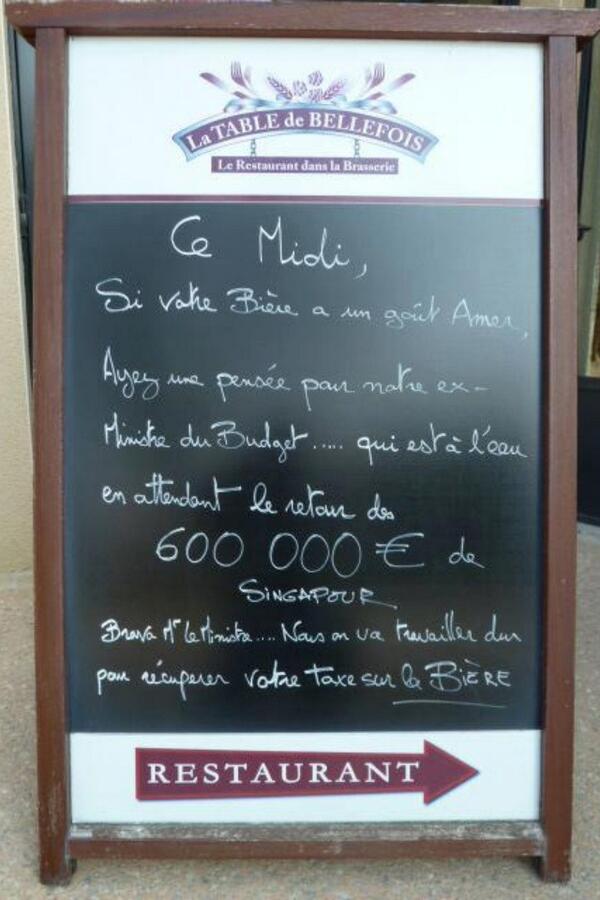 La TABLE de BELLEFOIS
Le Restaurant dans la Brasserie
Ce Midi,
Si votre Bière a un goût Amer,
Ayez une pensée pour notre ex-
Ministre du Budget..... qui est à l'eau
en attendant le retour des
600 000 € de
SINGAPOUR
Bravo Mr le Ministre.... Nous on va travailler dur
pour récuperer votre taxe sur la BIÈRE
RESTAURANT